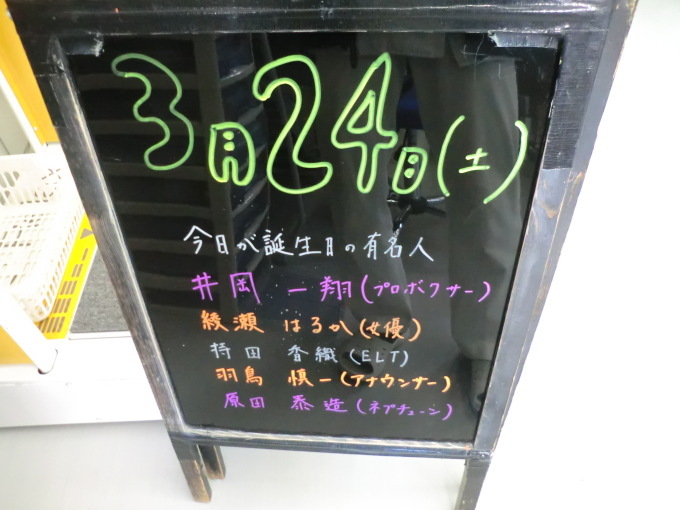 3月24日(土)
今日が誕生日の有名人
井岡 一翔(プロボクサー)
綾瀬 はるか(女優)
持田 香織(ELT)
羽鳥 慎一(アナウンサー)
原田 泰造(ネプチューン)